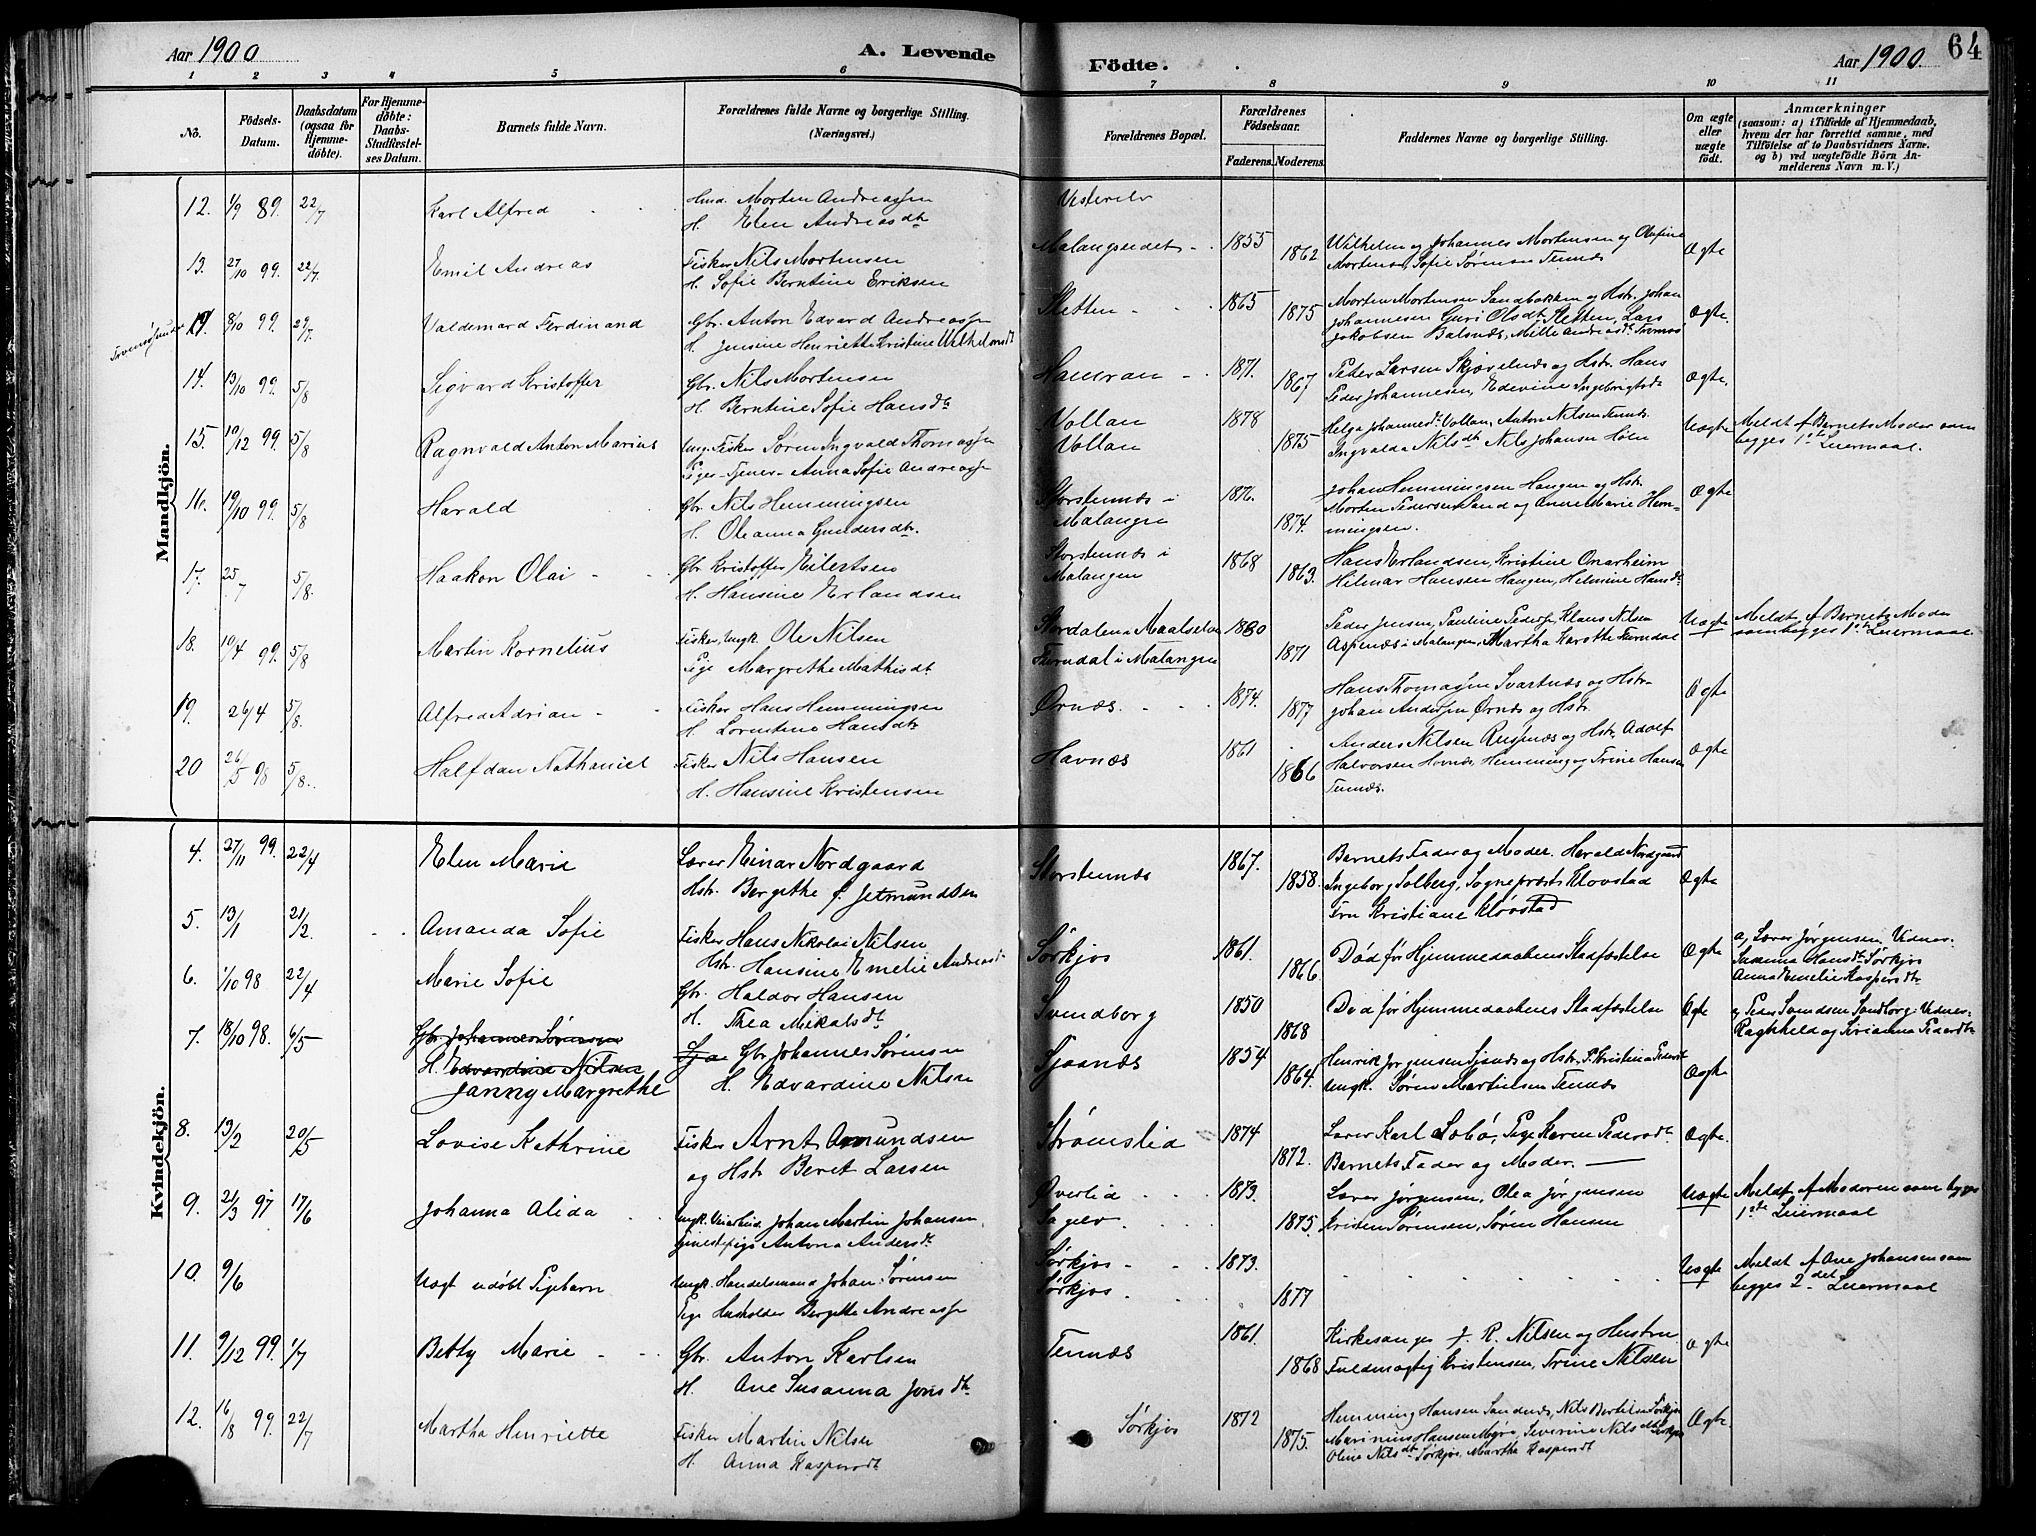 Aar 1900
A. Levende
Födte.
Aar 1900.
64
1 2 3 4 5 6 7 8 9 10 11
No.
Födsels-
Datum.
Daabsdatum
(ogsaa for
Hjemme-
döbte).
For Hjemme-
döbte:
Daabs-
Stadfæstel-
ses Datum.
Barnets fulde Navn.
Forældrenes fulde Navne og borgerlige Stilling.
(Næringsvei.)
Forældrenes Bopæl.
Forældrenes
Födselsaar.
Faderens. Moderens.
Faddernes Navne og borgerlige Stilling.
Om ægte
eller
uægte
födt.
Anmærkninger
(saasom: a) i Tilfælde af Hjemmedaab,
hvem der har forrettet samme, med
Tilföielse af to Daabsvidners Navne.
og b) ved uægtefödte Börn An-
melderens Navn m. V.)
Mandkjön.
12. 1/9 89. 22/7 Karl Alfred
Morten Andreassen
H. Elen Andreasdt
13. 27/10 99. 22/7 Emil Andreas
Fisker Nils Mortensen
H. Sofie Berntine Eriksen
Malangseidet 1855 1862
Wilhelm og Johannes Mortensen og Olufine
Mortens, Sofie Sørensen Tennæs
Ægte
8/10 99. 29/7 Valdemar Ferdinand
Gbr. Anton Edvard Andreassen
H. Jensine Henriette Kristine Wilhelmsdt
Sletten 1865 1875
Morten Mortensen Sandbakken og Hstr. Johan
Johannesen Guri Olsdt Sletten, Lars
Jakobsen Balsnæs, Milla Andreasdt Tromsø
Ægte.
14. 13/10 99. 5/8 Sigvard Kristoffer
Gbr. Nils Mortensen
H. Berntine Sofie Hansdt
1871. 1867
Peder Larsen Skjævelnæs og Hstr. Hans
Peder Johannesen, Edevine Ingebrigtsdt
Ægte.
15. 10/12 99. 5/8 Ragnvald Anton Marius
Ungk. Fisker Søren Ingvald Thomassen
Pige Tjener Anna Sofie Andreassen
Vollan
Vollan
1878 1875
Helga Johannesdt Vollan, Anton Nilsen Tennæs.
Ingvalda Nilsdt Nils Johansen
Uægte
Meldt af Barnets Moder som
begges 1ste Leiermaal.
16. 19/10 99. 5/8 Harald
Gbr. Nils Hemmingsen
H. Oleanna Gundersdt.
Storstennæs i
Malangen
1876. 1874.
Johan Hemmingsen Haugen og Hstr.
Morten Pedersen Sand og Anne Marie Hem-
mingsen.
Ægte
17. 25/7 5/8. Haakon Olai
Gbr. Kristoffer Eilertsen
H. Hansine Erlandsen
Storstennæs i
Malangen
1868 1863.
Hans Erlandsen, Kristine Onarheim
Hilmar Hansen Haugen, Helmine Hansdt
18. 10/4 99. 5/8 Martin Kornelius
Fisker, Ungk. Ole Nilsen
Pige Margrethe Mathisdt
Stordalen i Maalselven
Furudal i Malangen
1880 1871
Peder Jensen, Pauline Peders, Klaus Nilsen
Aspenæs i Malangen, Martha Karotte Furudal
Uægte
Meldt af Barnets Moder
som begges 1ste Leiermaal
19. 26/4 5/8. Alfred Adrian
Fisker Hans Hemmingsen
H. Lorentine Hansdt
Ørnæs. 1874. 1877
Hans Thomassen Svartnæs og Hstr.
Johan Andersen Ørnæs og Hstr.
Ægte
20 26/5 98 5/8. Halfdan Nathaniel
Fisker Nils Hansen
H. Hansine Kristensen
Havnæs 1861 1866
Anders Nilsen Aspenæs og Hstr. Adolf
Halvorsen Havnæs, Hemming og Trine Hansen
Tennæs.
Ægte
Kvindekjön.
4. 27/11 99. 22/4 Elen Marie
Lærer Einar Nordgaard
Hstr. Bergithe f. Jetmundsen
Storstennæs 1867. 1858.
Barnets Fader og Moder. Harald Nordgaard
Ingeborg Solberg, Sogneprest Klovstad
Fru Kristiane Klovstad
Ægte
5. 13/1 21/2. Amanda Sofie
Fisker Hans Nikolai Nilsen
Hstr. Hansine Emelie Andreasdt
Sørkjos 1861. 1866
Død før Hjemmedaabens Stadfæstelse
Ægte
a, Lærer Jørgensen, Vidner.
Susanna Hansdt Sørkjos
Anna Emelie Kaspersdt
6. 1/10 98 22/4 Marie Sofie
Gbr. Haldor Hansen
H. Thea Mikalsdt
Svendborg 1850 1868
Død før Hjemmedaabens Stadfæstelse
Ægte
Peder Samdsen Sandborg. Vidner.
Raghhild og Sirianna Pedersdt
7. 18/10 98. 6/5 Gbr. Johannes Sørensen
H. Edvardine Nilsen
Janny Margrethe
Gbr. Johannes Sørensen
H. Edvardine Nilsen
Sjaanæs 1854 1864.
Henrik Jørgensen Sjaanæs og Hstr. P. Kristina Pedersdt
Ungk. Søren Martinsen Tennæs
Ægte
8. 13/2 20/5 Lovise Kathrine
Fisker Arnt Amundsen
og Hstr. Beret Larsen
Strømslid 1874 1872.
Lærer Karl Løbø, Pige Karen Pedersdt.
Barnets Fader og Moder.
Ægte.
9. 21/3 97 17/6 Johanna Alida
Ungk. Johan Martin Johansen.
Antona Andersdt
Øverlid
Sagelv
1873. 1875.
Lærer Jørgensen, Olea Jørgensen
Kristen Sørensen, Søren Hansen
Uægte
Meldt af Moderen som begges
1ste Leiermaal
10. 9/6 Uægt udøbt Pigebarn
Ungk. Handelsmand Johan Sørensen
Pige Husholder Bergitte Andreassen
Sørkjos
Sørkjos
1873. 1877
Uægte
Meldt af Ane Johansen som
begges 2det Leiermaal
11. 9/12 99. 1/7 Betty Marie
Gbr. Anton Karlsen
H. Ane Susanna Jonsdt.
Tennæs 1861. 1868
Kirkesanger J. R. Nilsen og Hustru
Fuldmægtig Kristensen, Trine Nilsen
Ægte
12. 16/8 99. 22/7 Martha Henriette
Fisker Martin Nilsen
H. Anna Kaspersdt
Sørkjos 1872 1875.
Hemming Hansen Sandnæs, Nils Bertilsen Sørkjos
Marinius Hansen Myre, Severine Nilsdt Sørkjos
Oline Nilsdt Sørkjos, Martha Kaspersdt
Ægte